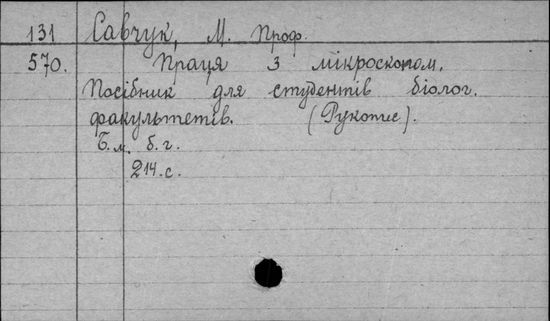 131 Савчук, М. Проф.
570. Праця з мікроскопом.
Посібник для студентів біолог.
факультетів. (Рукопис).
Б.м. б.г.
214.с.